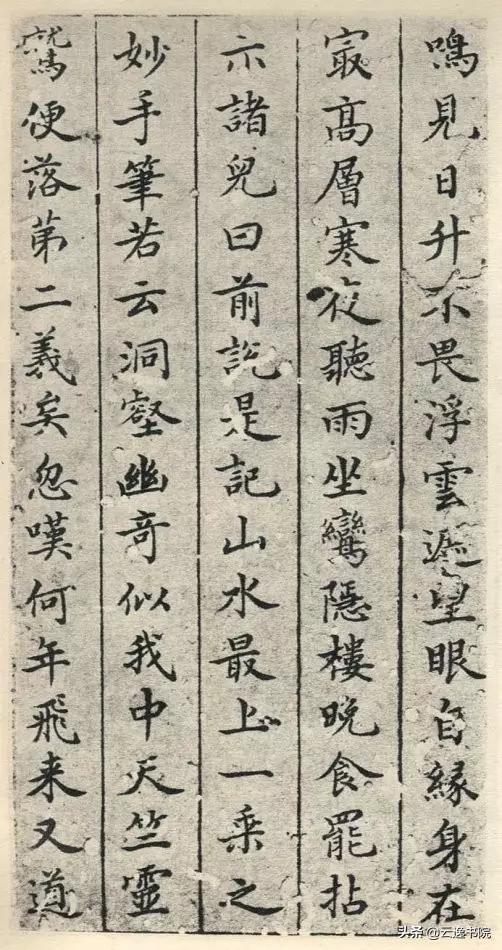 鳴見日升不畏浮雲遮望眼自緣身在
㝡高層寒夜聽雨坐鸞隱樓晚食罷拈
示諸兒曰前説是記山水最上一乘之
妙手筆若云洞壑幽奇似我中天竺靈
鷲便落苐二義矣忽嘆何年飛来又道
头条 @云逸书院